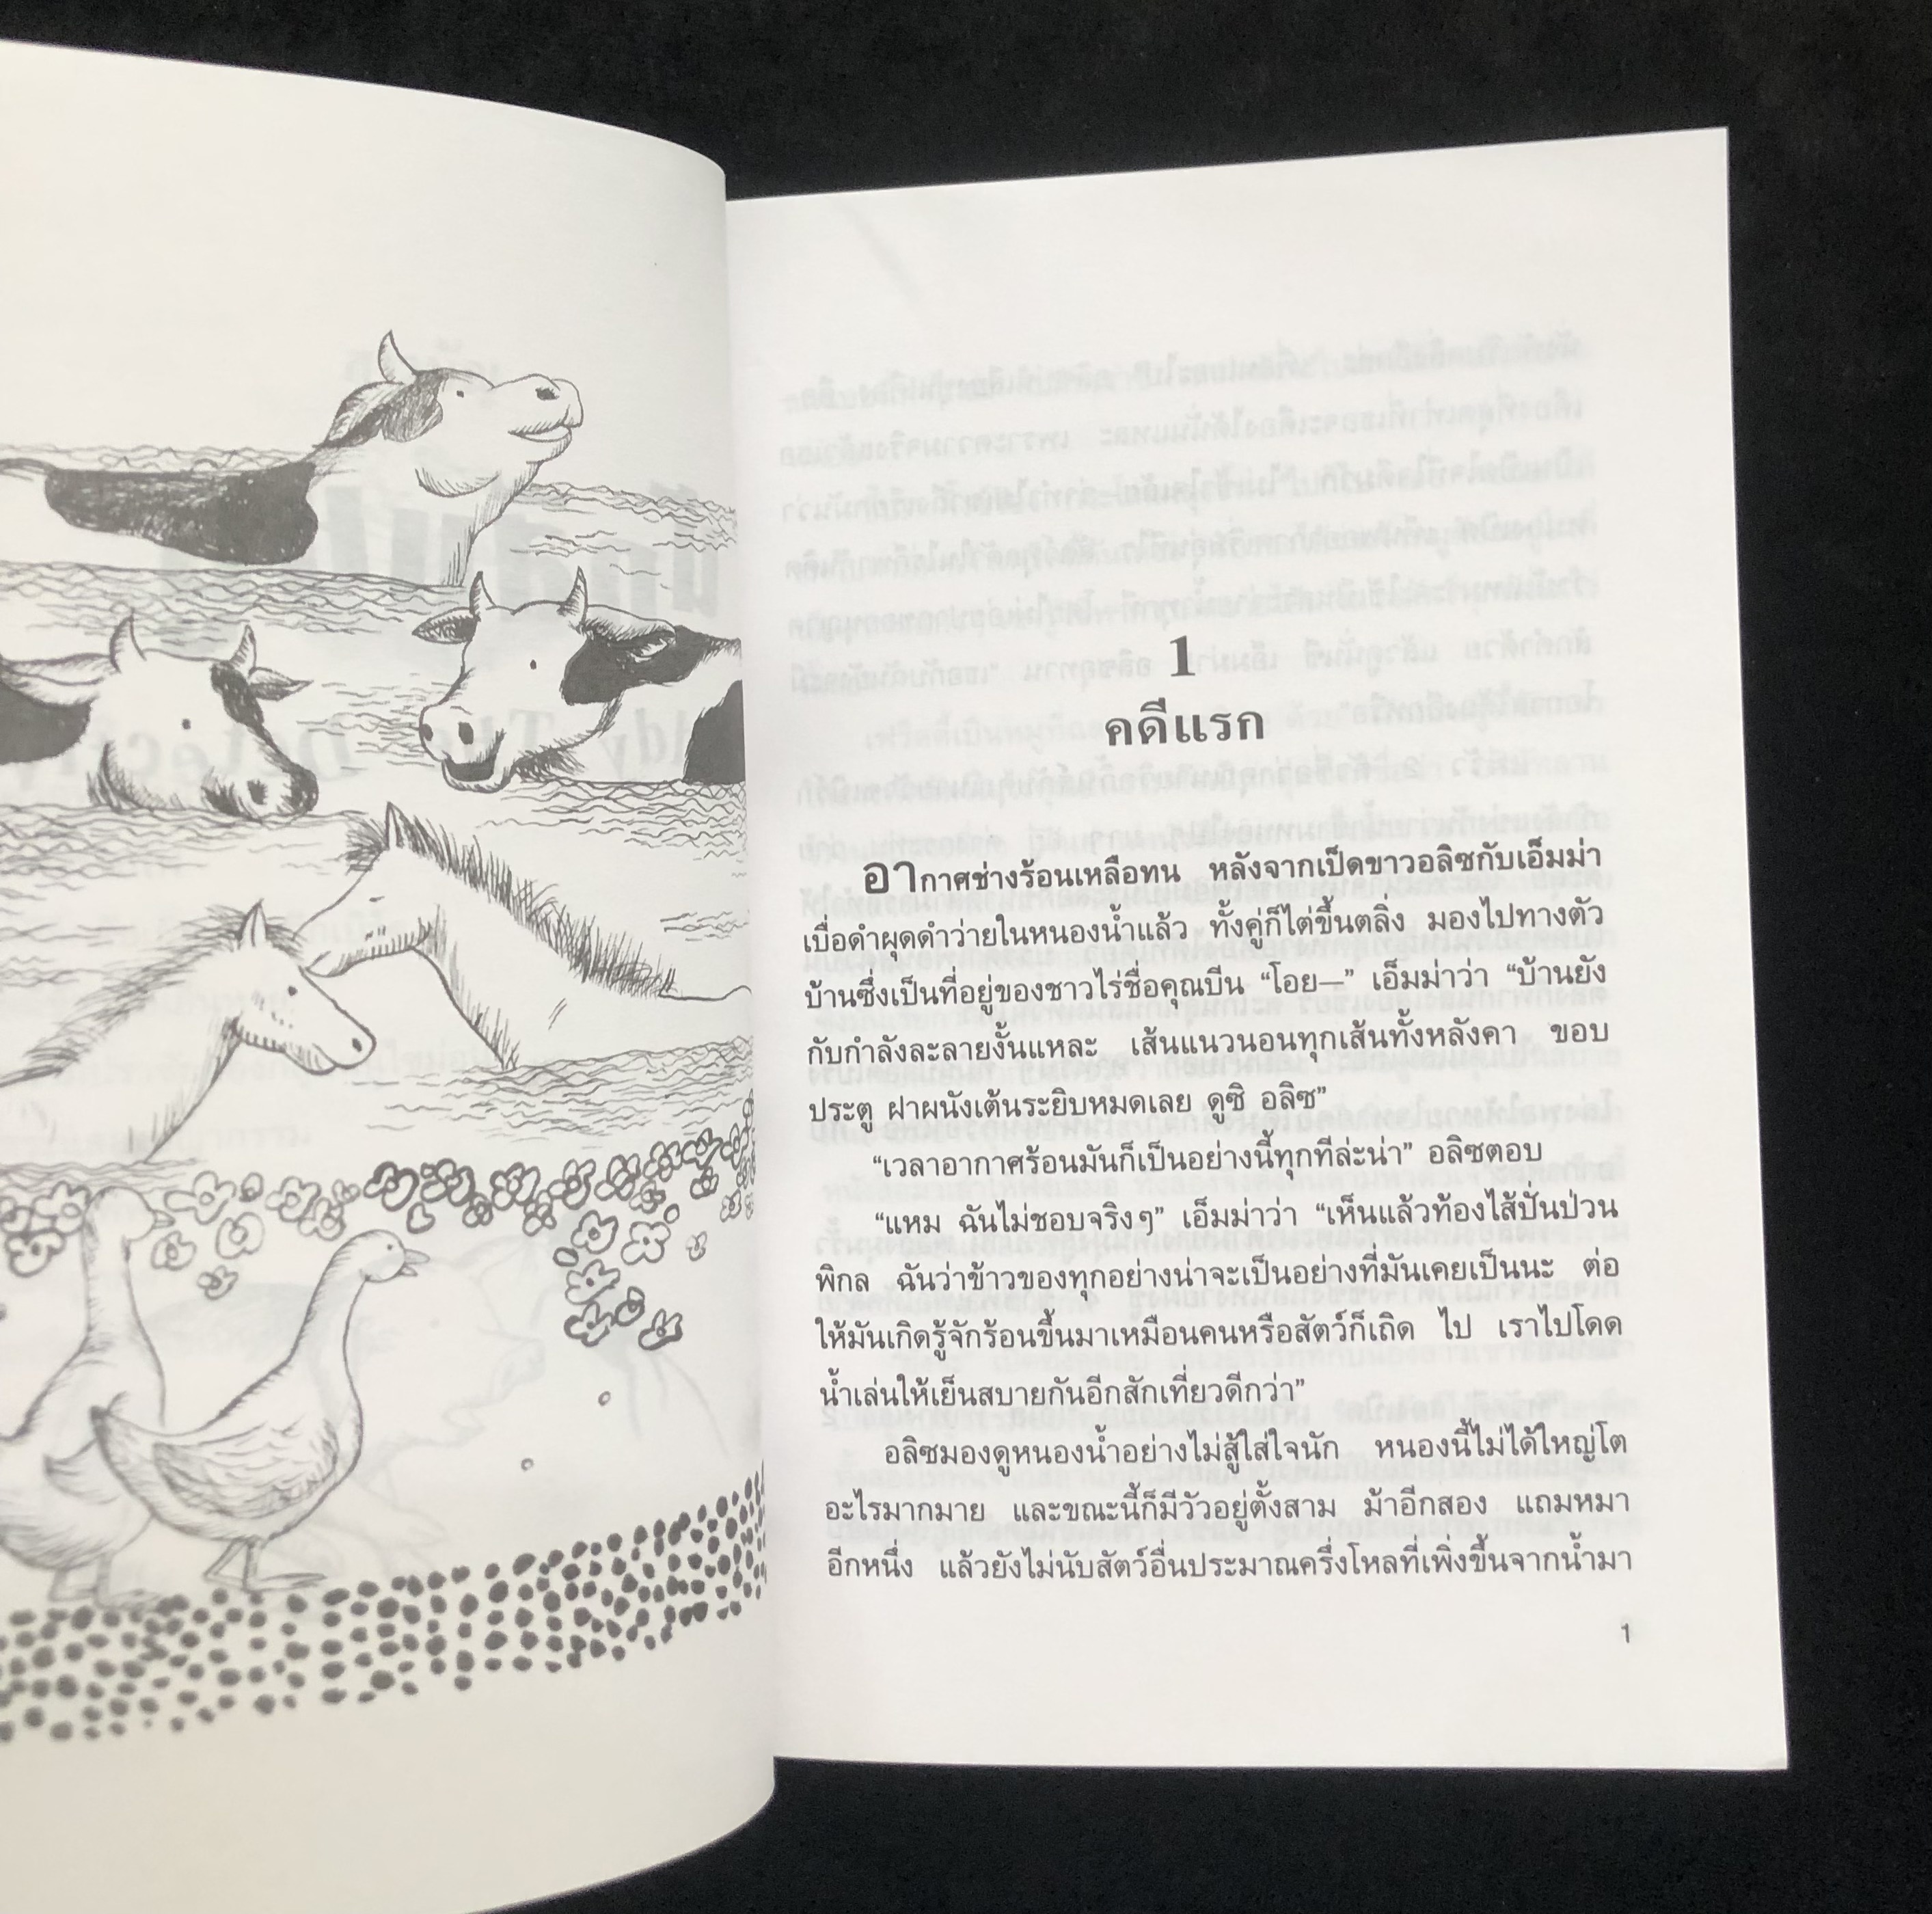 1
คดีแรก
อากาศช่างร้อนเหลือทน หลังจากเป็ดขาวอลิซกับเอ็มม่า
เบื่อดำผุดดำว่ายในหนองน้ำแล้ว ทั้งคู่ก็ไต่ขึ้นตลิ่ง มองไปทางตัว
บ้านซึ่งเป็นที่อยู่ของชาวไร่ชื่อคุณบีน “โอย—” เอ็มม่าว่า “บ้านยัง
กับกำลังละลายงั้นแหละ เส้นแนวนอนทุกเส้นทั้งหลังคา ขอบ
ประตู ฝาผนังเต้นระยิบหมดเลย ดูซิ อลิซ”
“เวลาอากาศร้อนมันก็เป็นอย่างนี้ทุกทีล่ะน่า” อลิซตอบ
“แหม ฉันไม่ชอบจริงๆ” เอ็มม่าว่า “เห็นแล้วท้องไส้ปั่นป่วน
พิกล ฉันว่าข้าวของทุกอย่างน่าจะเป็นอย่างที่มันเคยเป็นนะ ต่อ
ให้มันเกิดรู้จักร้อนขึ้นมาเหมือนคนหรือสัตว์ก็เถิด ไป เราไปโดด
น้ำเล่นให้เย็นสบายกันอีกสักเที่ยวดีกว่า”
อลิซมองดูหนองน้ำอย่างไม่สู้ใส่ใจนัก หนองนี้ไม่ได้ใหญ่โต
อะไรมากมาย และขณะนี้ก็มีวัวอยู่ตั้งสาม ม้าอีกสอง แถมหมา
อีกหนึ่ง แล้วยังไม่นับสัตว์อื่นประมาณครึ่งโหลที่เพิ่งขึ้นจากน้ำมา
1